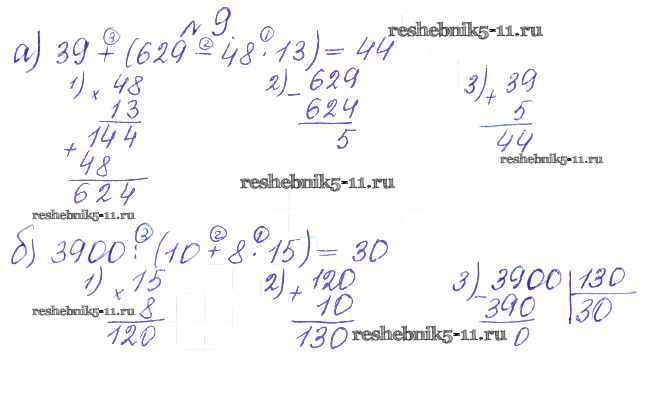 № 9.
reshebnik5-11.ru
а) 39 + (629 - 48 · 13) = 44
③ ② ①
1) × 48
13
+ 144
48
624
2) - 629
624
5
3) + 39
5
44
reshebnik5-11.ru
reshebnik5-11.ru
reshebnik5-11.ru
б) 3900 : (10 + 8 · 15) = 30
③ ② ①
1) × 15
8
120
2) + 120
10
130
3) - 3900 | 130
390 | 30
0
reshebnik5-11.ru
reshebnik5-11.ru